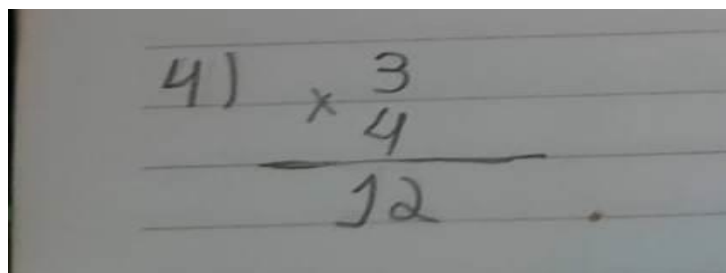 4) 3
× 4
12